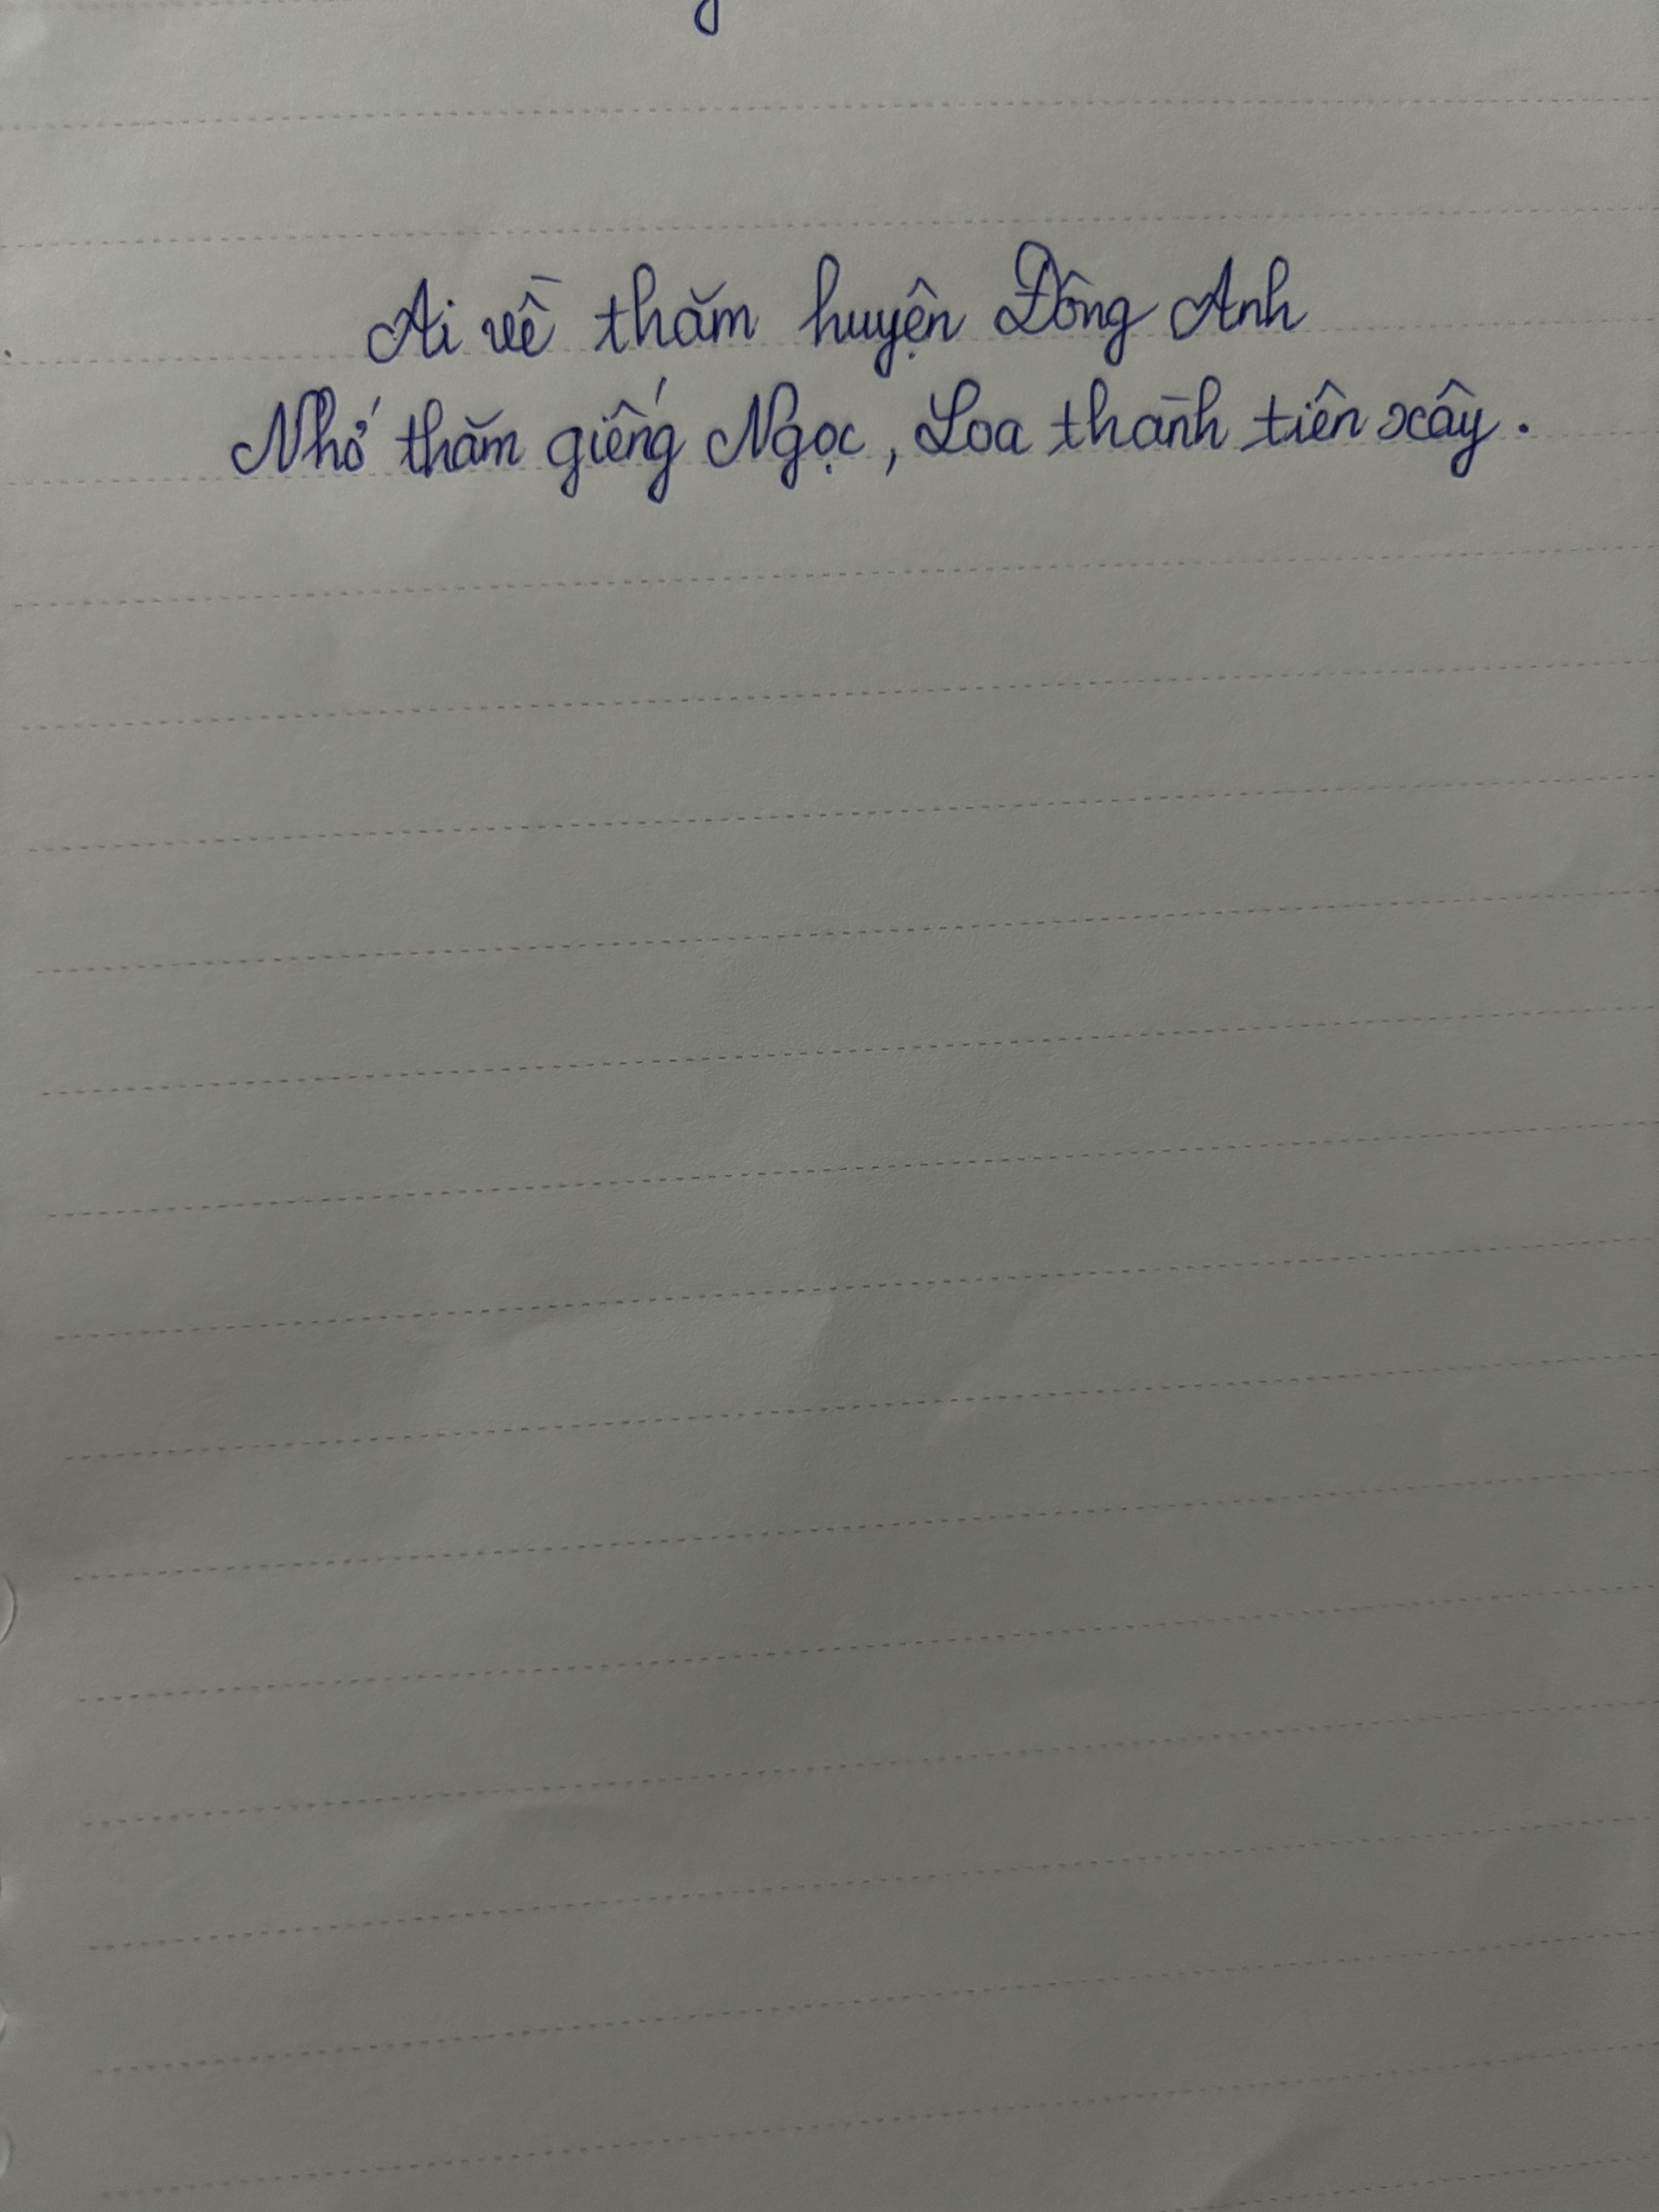 Ai về thăm huyện Đông Anh
Nhớ thăm giếng Ngọc, Loa thành tiên xây.